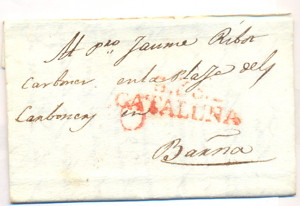 Al pro Jaume Ribot
Carboner en la Plasse dels
Carboners en
CATALUÑA
Barña